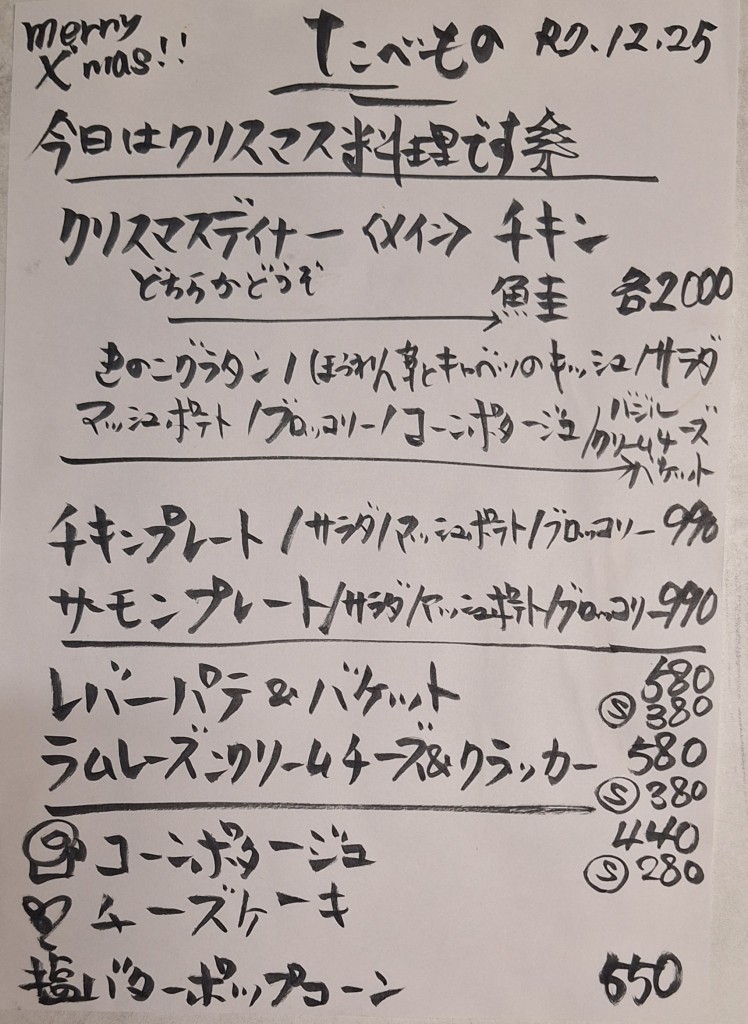 merry
X'mas!!
たべもの R7.12.25
今日はクリスマス料理です祭
クリスマスディナー〈メイン〉 チキン
どちらかどうぞ → 鮭 各2000
きのこグラタン/ほうれん草とキャベツのキッシュ/サラダ
マッシュポテト/ブロッコリー/コーンポタージュ/バジル
クリームチーズ
バケット
チキンプレート/サラダ/マッシュポテト/ブロッコリー 990
サーモンプレート/サラダ/マッシュポテト/ブロッコリー 990
レバーパテ&バケット 580
Ⓢ 380
ラムレーズンクリームチーズ&クラッカー 580
Ⓢ 380
コーンポタージュ 440
Ⓢ 280
チーズケーキ
塩バターポップコーン 550